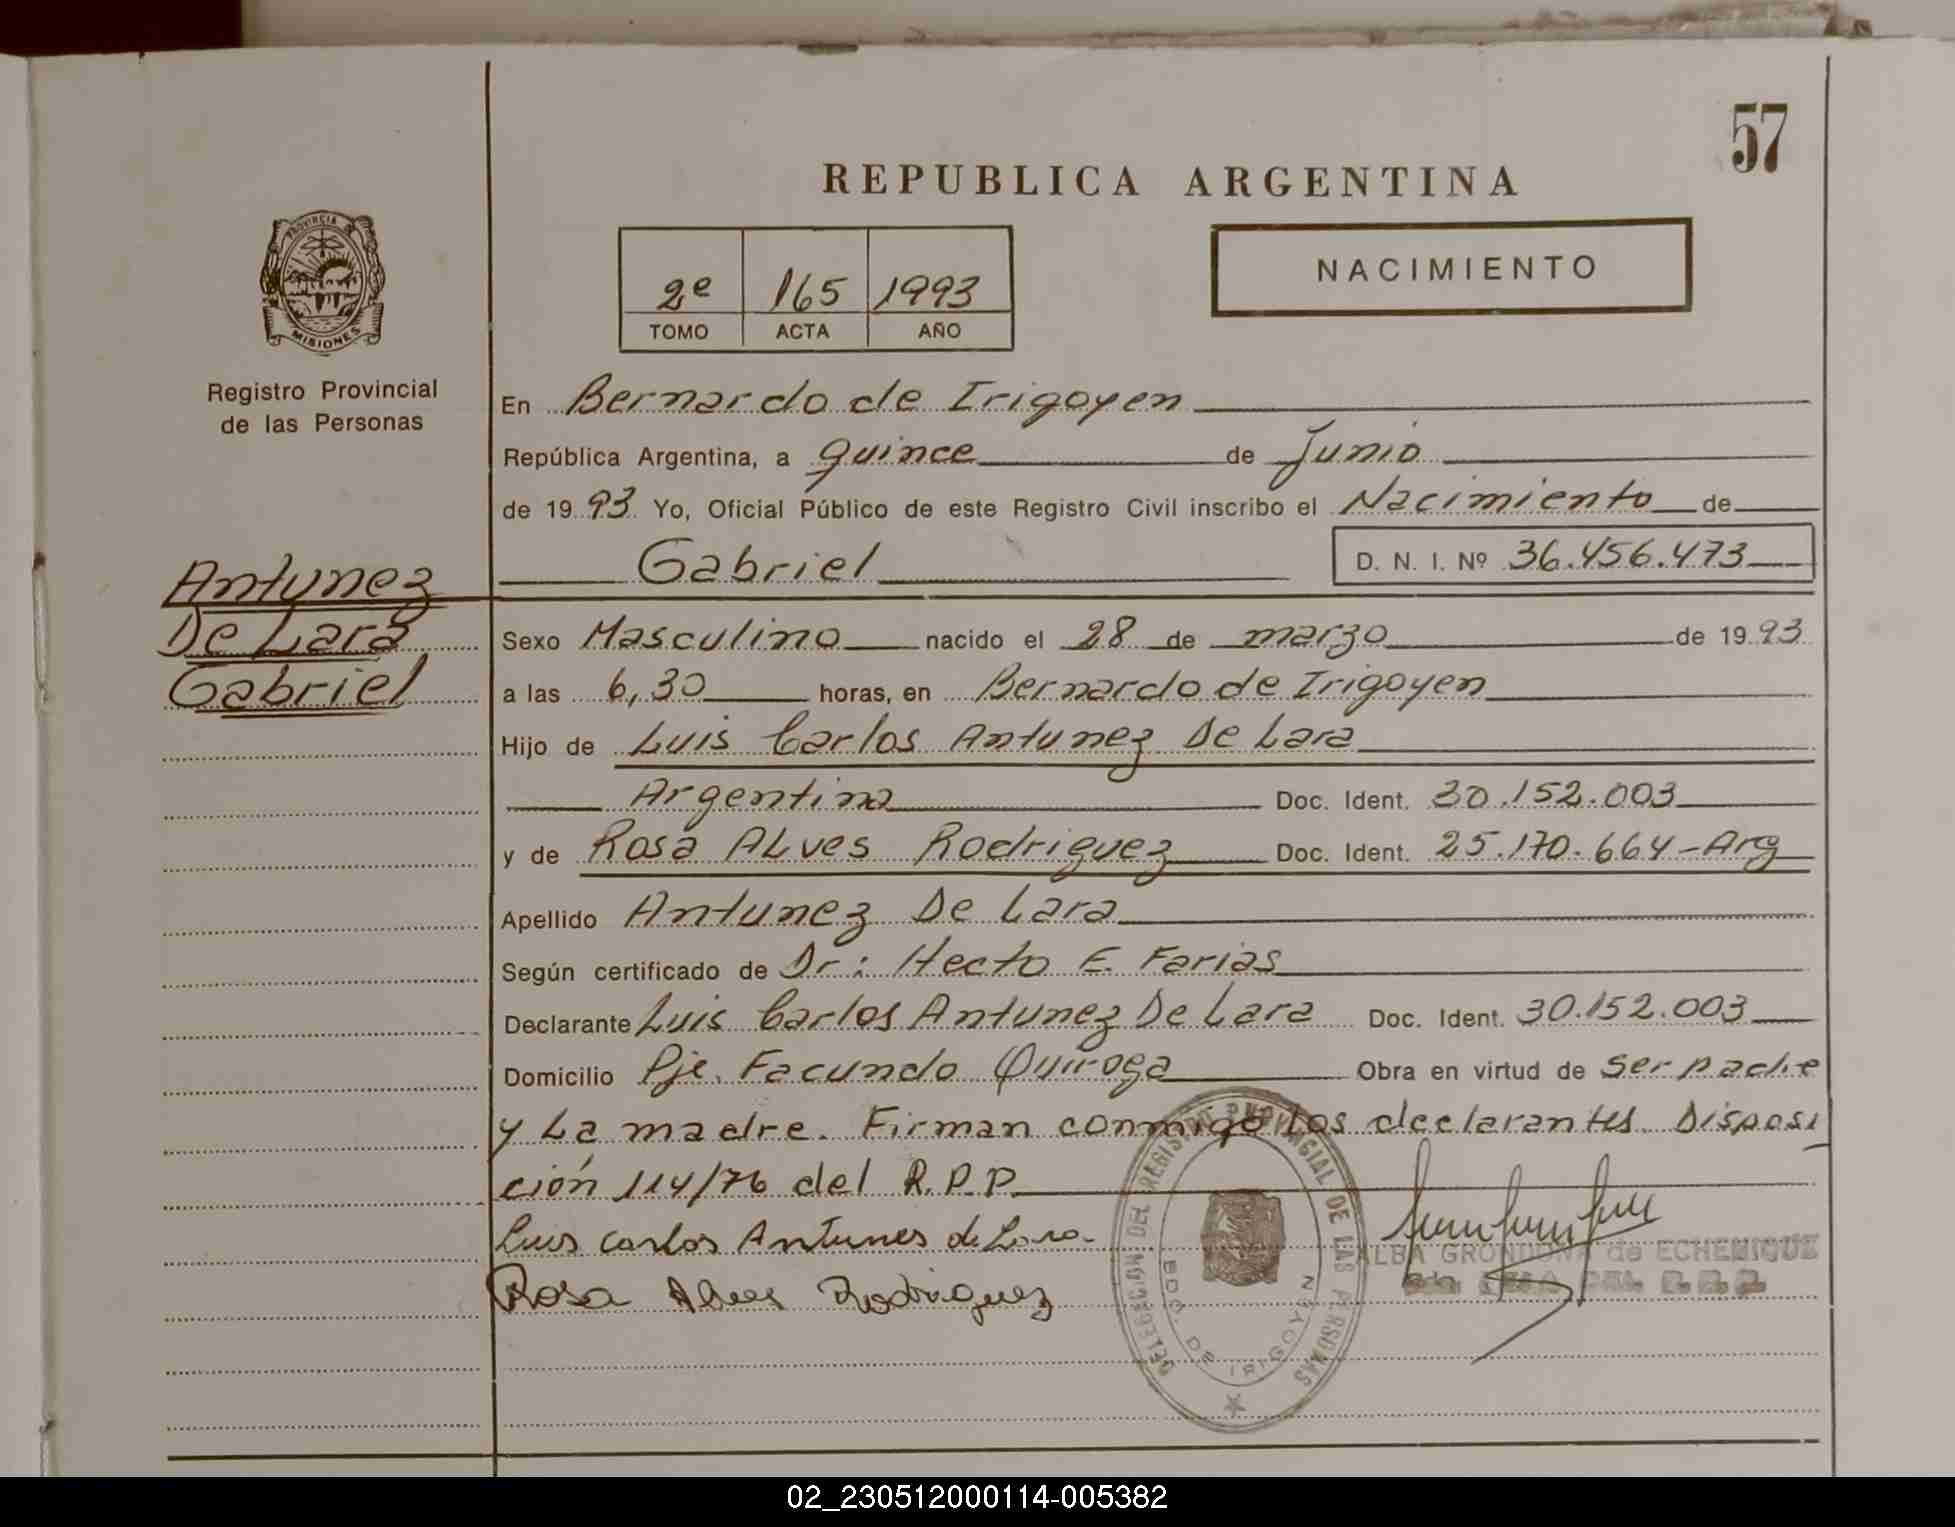 57
REPUBLICA ARGENTINA
PROVINCIA
MISIONES
Registro Provincial
de las Personas
2º 165 1993
TOMO ACTA AÑO
NACIMIENTO
En Bernardo de Irigoyen
República Argentina, a quince de Junio
de 1993 Yo, Oficial Público de este Registro Civil inscribo el Nacimiento de
Gabriel D. N. I. Nº 36.456.473
Antunez
De Lara
Gabriel
Sexo Masculino nacido el 28 de marzo de 1993
a las 6,30 horas, en Bernardo de Irigoyen
Hijo de Luis Carlos Antunez De Lara
Argentina Doc. Ident. 30.152.003
y de Rosa Alves Rodriguez Doc. Ident. 25.170.664-Arg
Apellido Antunez De Lara
Según certificado de Dr: Hecto E. Farias
Declarante Luis Carlos Antunez De Lara Doc. Ident. 30.152.003
Domicilio Pje. Facundo Quiroga Obra en virtud de ser padre
y La madre. Firman conmigo los declarantes. Disposi
ción 114/76 del R.P.P.
Luis Carlos Antunes de Lara
Rosa Alves Rodriguez
DELEGACION DEL REGISTRO PROVINCIAL DE LAS PERSONAS
BDO. DE IRIGOYEN
ALBA GRONDONA de ECHENIQUE
DEL R.P.P.
02_230512000114-005382